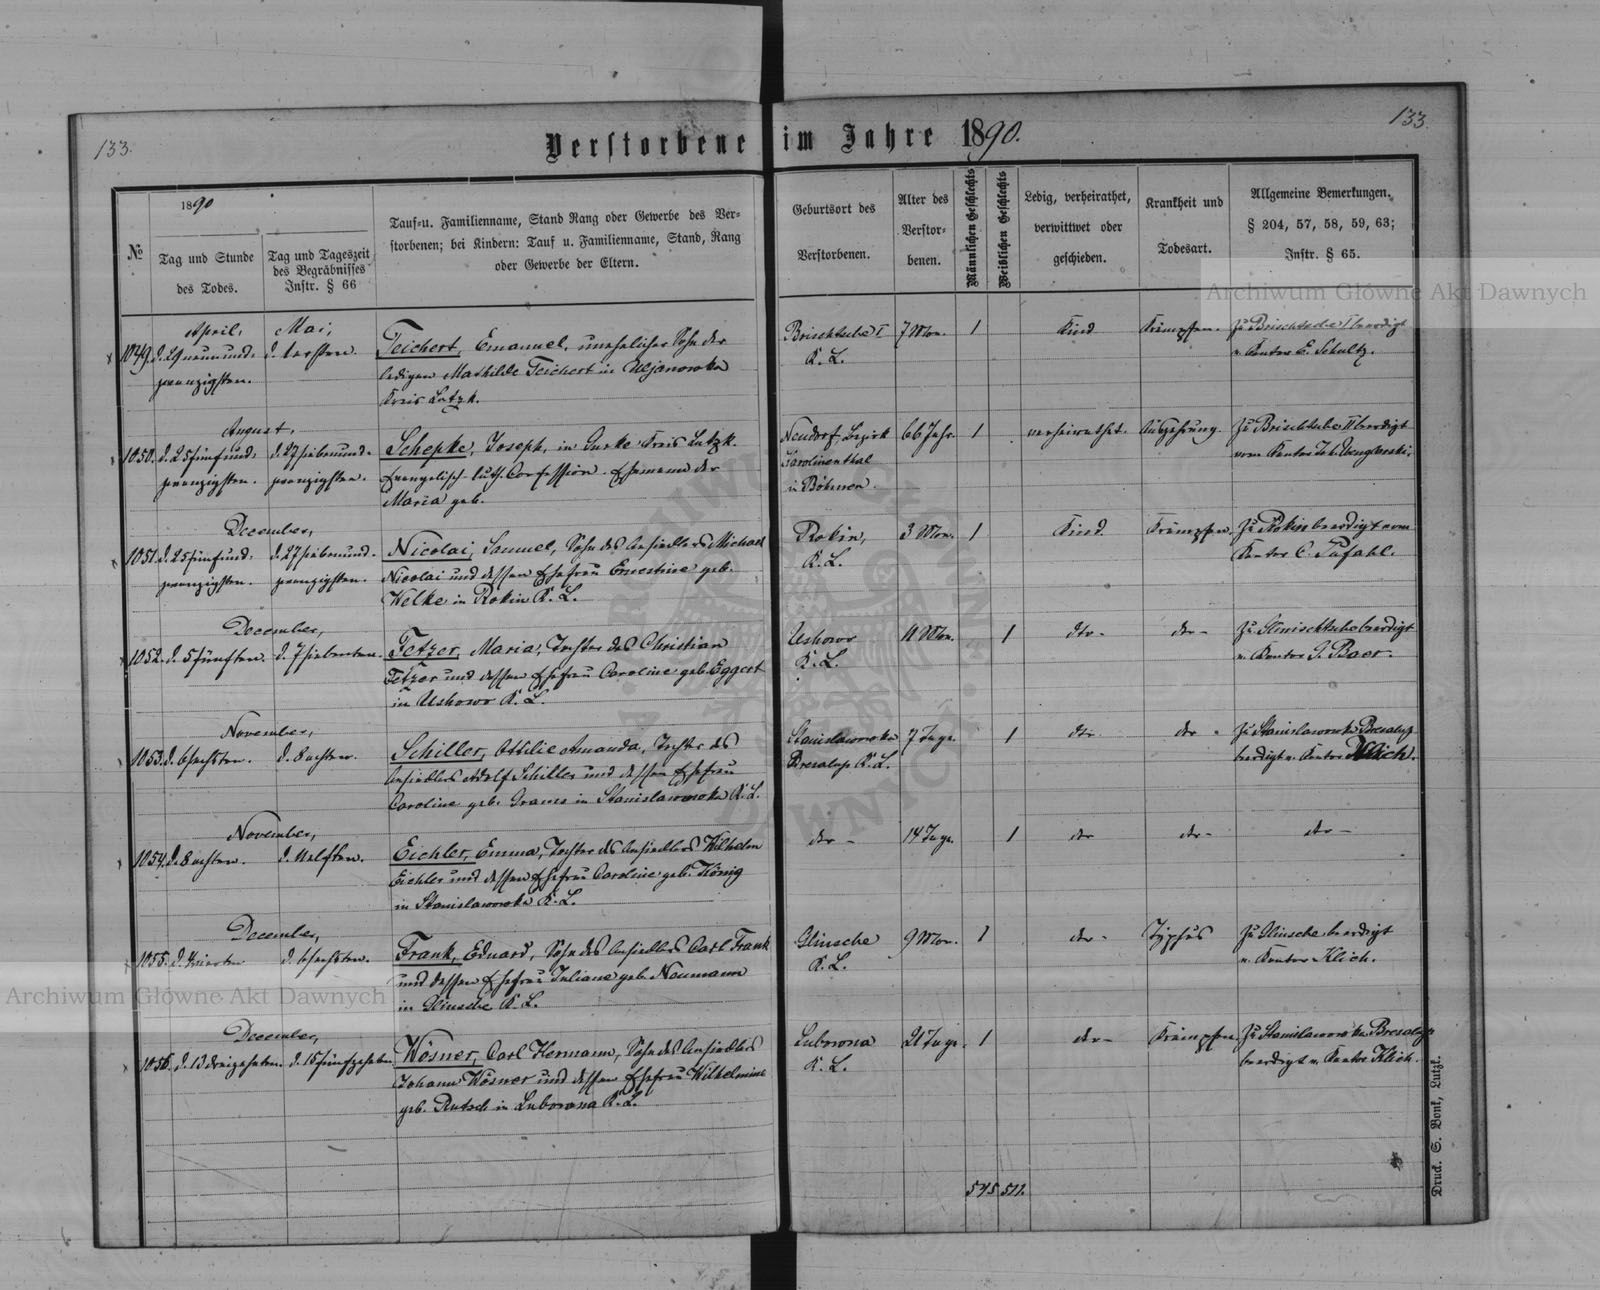 133.
133.
Verstorbene im Jahre 1890.
1890
№
Tag und Stunde
des Todes.
Tag und Tageszeit
des Begräbnisses
Instr. § 66
Tauf- u. Familienname, Stand Rang oder Gewerbe des Ver-
storbenen; bei Kindern: Tauf u. Familienname, Stand, Rang
oder Gewerbe der Eltern.
Geburtsort des
Verstorbenen.
Alter des
Verstor-
benen.
Männlichen Geschlechts
Weiblichen Geschlechts
Ledig, verheirathet,
verwittwet oder
geschieden.
Krankheit und
Todesart.
Allgemeine Bemerkungen.
§ 204, 57, 58, 59, 63;
Instr. § 65.
April, Mai,
1049. d. 29 neunund- d. 1 ersten.
zwanzigsten.
Teichert, Emanuel, unehelicher Sohn der
ledigen Mathilde Teichert in Uljanowka
Kreis Lutzk.
Brischtsche I
K. L.
7 Mon.
1
Kind
Krämpfen.
Zu Brischtsche I beerdigt
v. Kantor E. Schultz.
August,
1050. d. 25 fünfund- d. 27 siebenund-
zwanzigsten. zwanzigsten.
Schepke, Joseph, in Kreis Lutzk
Evangelisch-luth. Confession. Ehemann der
Maria geb.
Neudorf, Bezirk
Karolinenthal
in Böhmen.
66 Jahr.
1
verheirathet.
Auszehrung.
Zu Brischtsche II beerdigt
vom Kantor Joh.
December,
1051. d. 25 fünfund- d. 27 siebenund-
zwanzigsten. zwanzigsten.
Nicolai, Samuel, Sohn des Ansiedlers Michael
Nicolai und dessen Ehefrau Ernestine geb.
Welke in Rokin K. L.
Rokin,
K. L.
3 Mon.
1
Kind
Krämpfen.
Zu Rokin beerdigt vom
Kantor C. Zufahl.
December,
1052. d. 5 fünften. d. 7 siebenten.
Fetzer, Maria, Tochter des Christian
Fetzer und dessen Ehefrau Caroline geb. Eggert
in Ushowo K. L.
Ushowo
K. L.
11 Mon.
1
dto-
dto-
Zu beerdigt
v. Kantor G. Baer.
November,
1053. d. 6 sechsten. d. 8 achten.
Schiller, Ottilie Amanda, Tochter des
Ansiedlers Adolf Schiller und dessen Ehefrau
Caroline geb. Grams in Stanislawowka K. L.
Stanislawowka
K. L.
7 Tage.
1
dto-
dto-
Zu Stanislawowka
beerdigt v. Kantor Klich.
November,
1054. d. 8 achten. d. 11 elften.
Eichler, Emma, Tochter des Ansiedlers Wilhelm
Eichler und dessen Ehefrau Caroline geb. König
in Stanislawowka K. L.
dto-
14 Tage.
1
dto
dto-
dto-
December,
1055. d. 4 vierten d. 6 sechsten.
Frank, Eduard, Sohn des Ansiedlers Carl Frank
und dessen Ehefrau Juliane geb. Neumann
in Glinsche K. L.
Glinsche
K. L.
9 Mon.
1
dto-
Typhus
Zu Glinsche beerdigt
v. Kantor Klich.
December,
1056. d. 13 dreizehnten. d. 15 fünfzehnten
Wösner, Carl Hermann, Sohn des Ansiedlers
Johann Wösner und dessen Ehefrau Wilhelmine
geb. Rutsch in Luborona K. L.
Luborona
K. L.
21 Tage.
1
dto-
Krämpfen.
Zu Stanislawowka
beerdigt v. Kantor Klich.
545 511.
Druck. S. Bonk, Lutzk.
Archiwum Główne Akt Dawnych
Archiwum Główne Akt Dawnych